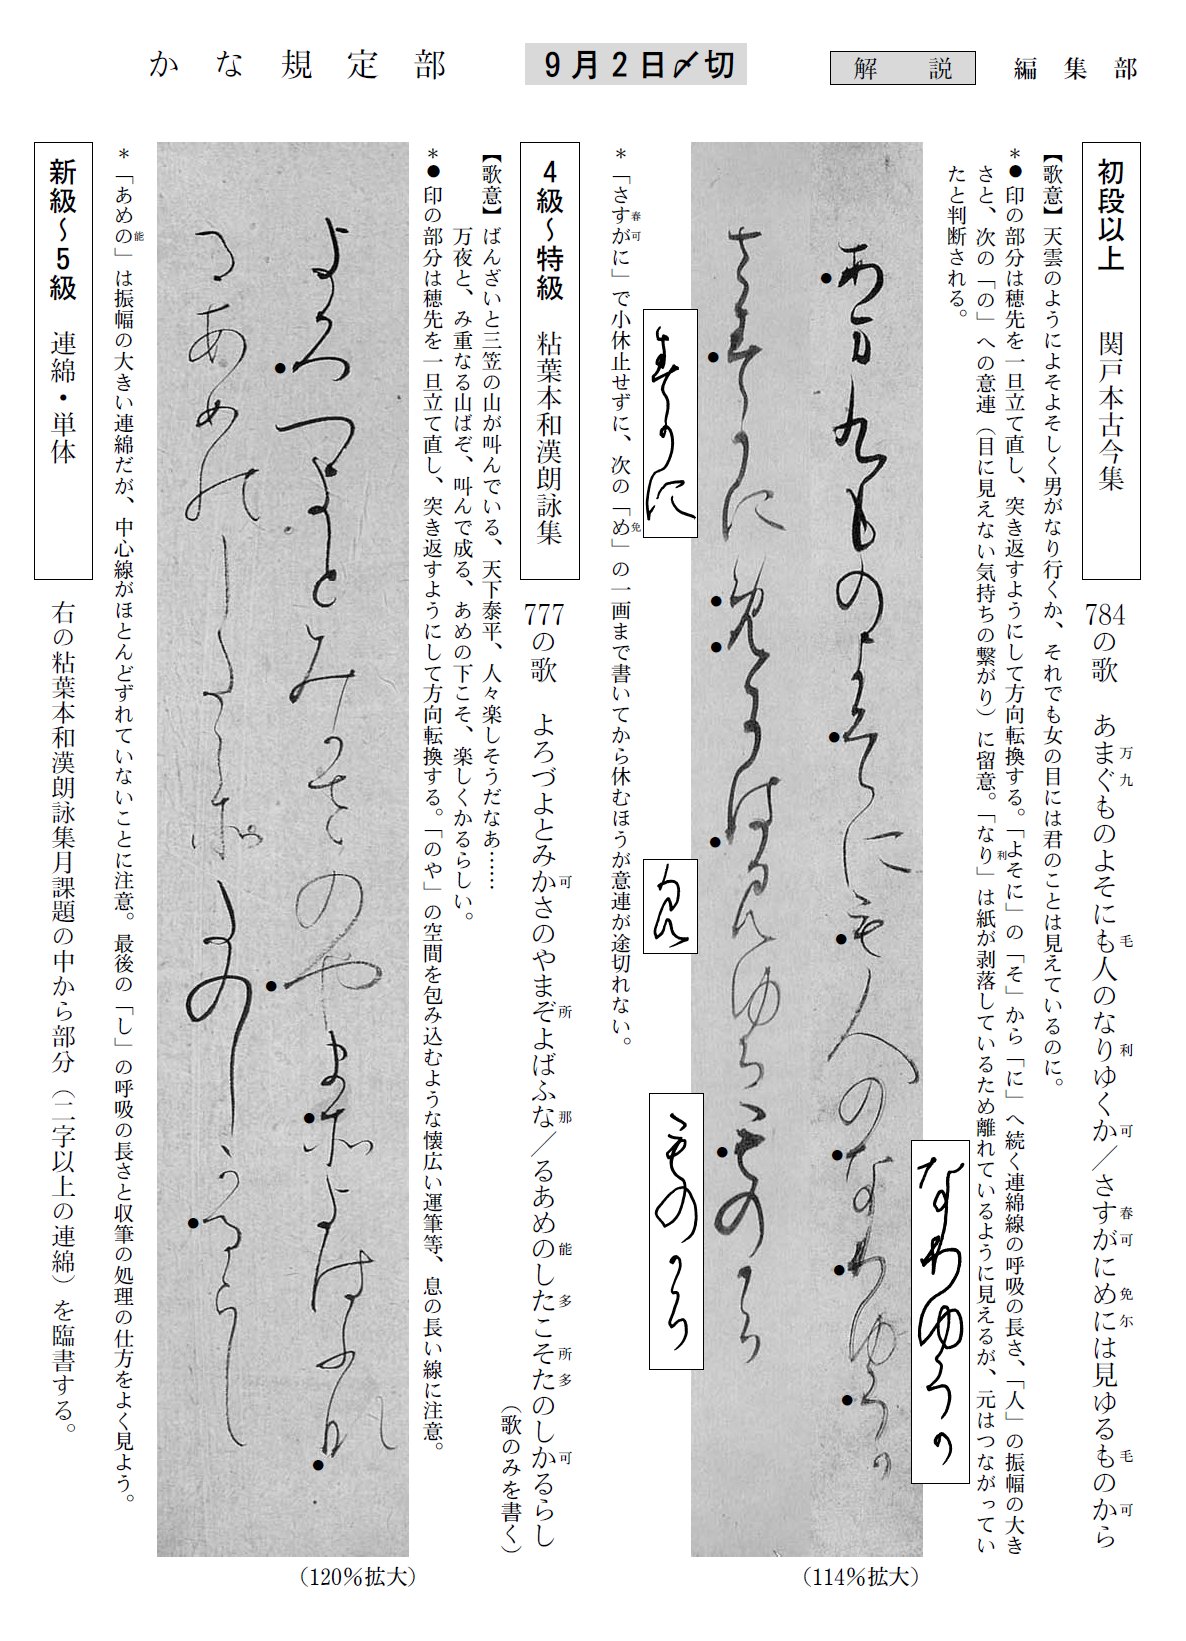 かな規定部　9月2日〆切　解説　編集部
初段以上　関戸本古今集　784の歌　あまぐものよそにも人のなりゆくか／さすがにめには見ゆるものから
万九　毛　利　可　春可　免　尓　毛　可
【歌意】天雲のようによそよそしく男がなり行くか、それでも女の目には君のことは見えているのに。
＊●印の部分は穂先を一旦立て直し、突き返すようにして方向転換する。「よそに」の「そ」から「に」へ続く連綿線の呼吸の長さ、「人」の振幅の大き
さと、次の「の」への意連（目に見えない気持ちの繋がり）に留意。「なり」は紙が剥落しているため離れているように見えるが、元はつながってい
利
たと判断される。
あまくものよそにも人のなりゆくか
さすかにめには見ゆるものから
なりゆくか
さすかに
見
ものから
（114％拡大）
＊「さすがに」で小休止せずに、次の「め」の一画まで書いてから休むほうが意連が途切れない。
春可　免
4級～特級　粘葉本和漢朗詠集　777の歌　よろづよとみかさのやまぞよばふな／るあめのしたこそたのしかるらし
可　所　那　能　多　所　多　可
（歌のみを書く）
【歌意】ばんざいと三笠の山が叫んでいる、天下泰平、人々楽しそうだなあ……
万夜と、み重なる山ばぞ、叫んで成る、あめの下こそ、楽しくかるらしい。
＊●印の部分は穂先を一旦立て直し、突き返すようにして方向転換する。「のや」の空間を包み込むような懐広い運筆等、息の長い線に注意。
よろつよとみかさのやまそよはふな
るあめのしたこそたのしかるらし
（120％拡大）
＊「あめの」は振幅の大きい連綿だが、中心線がほとんどずれていないことに注意。最後の「し」の呼吸の長さと収筆の処理の仕方をよく見よう。
能
新級～5級　連綿・単体　右の粘葉本和漢朗詠集月課題の中から部分（二字以上の連綿）を臨書する。